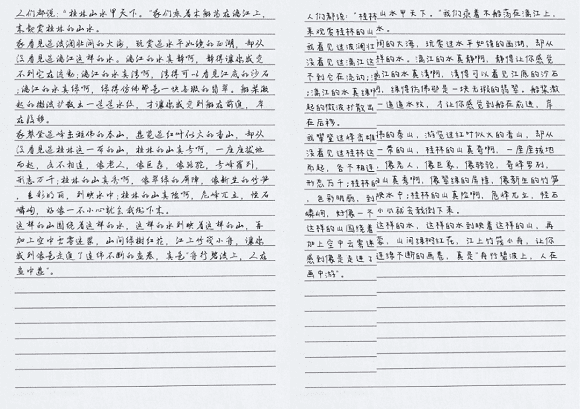 人们都说："桂林山水甲天下。"我们乘着木船荡在漓江上，
来观赏桂林的山水。
我看见过波澜壮阔的大海，玩赏过水平如镜的西湖，却从
没看见过漓江这样的水。漓江的水真静啊，静得让你感觉
不到它在流动；漓江的水真清啊，清得可以看见江底的沙石
；漓江的水真绿啊，绿得仿佛那是一块无瑕的翡翠。船桨激
起的微波扩散出一道道水纹，才让你感觉到船在前进，岸
在后移。
我攀登过峰峦雄伟的泰山，游览过红叶似火的香山，却从
没看见过桂林这一带的山，桂林的山真奇啊，一座座拔地
而起，各不相连，像老人，像巨象，像骆驼，奇峰罗列，
形态万千；桂林的山真秀啊，像翠绿的屏障，像新生的竹笋
，色彩明丽，倒映水中；桂林的山真险啊，危峰兀立，怪石
嶙峋，好像一不小心就会栽倒下来。
这样的山围绕着这样的水，这样的水倒映着这样的山，再
加上空中云雾迷蒙，山间绿树红花，江上竹筏小舟，让你
感到像是走进了连绵不断的画卷，真是"舟行碧波上，人在
画中游"。
人们都说："桂林山水甲天下。"我们乘着木船荡在漓江上，
来观赏桂林的山水。
我看见过波澜壮阔的大海，玩赏过水平如镜的西湖，却从
没看见过漓江这样的水。漓江的水真静啊，静得让你感觉
不到它在流动；漓江的水真清啊，清得可以看见江底的沙石
；漓江的水真绿啊，绿得仿佛那是一块无瑕的翡翠。船桨激
起的微波扩散出一道道水纹，才让你感觉到船在前进，岸
在后移。
我攀登过峰峦雄伟的泰山，游览过红叶似火的香山，却从
没看见过桂林这一带的山，桂林的山真奇啊，一座座拔地
而起，各不相连，像老人，像巨象，像骆驼，奇峰罗列，
形态万千；桂林的山真秀啊，像翠绿的屏障，像新生的竹笋
，色彩明丽，倒映水中；桂林的山真险啊，危峰兀立，怪石
嶙峋，好像一不小心就会栽倒下来。
这样的山围绕着这样的水，这样的水倒映着这样的山，再
加上空中云雾迷蒙，山间绿树红花，江上竹筏小舟，让你
感到像是走进了连绵不断的画卷，真是"舟行碧波上，人在
画中游"。